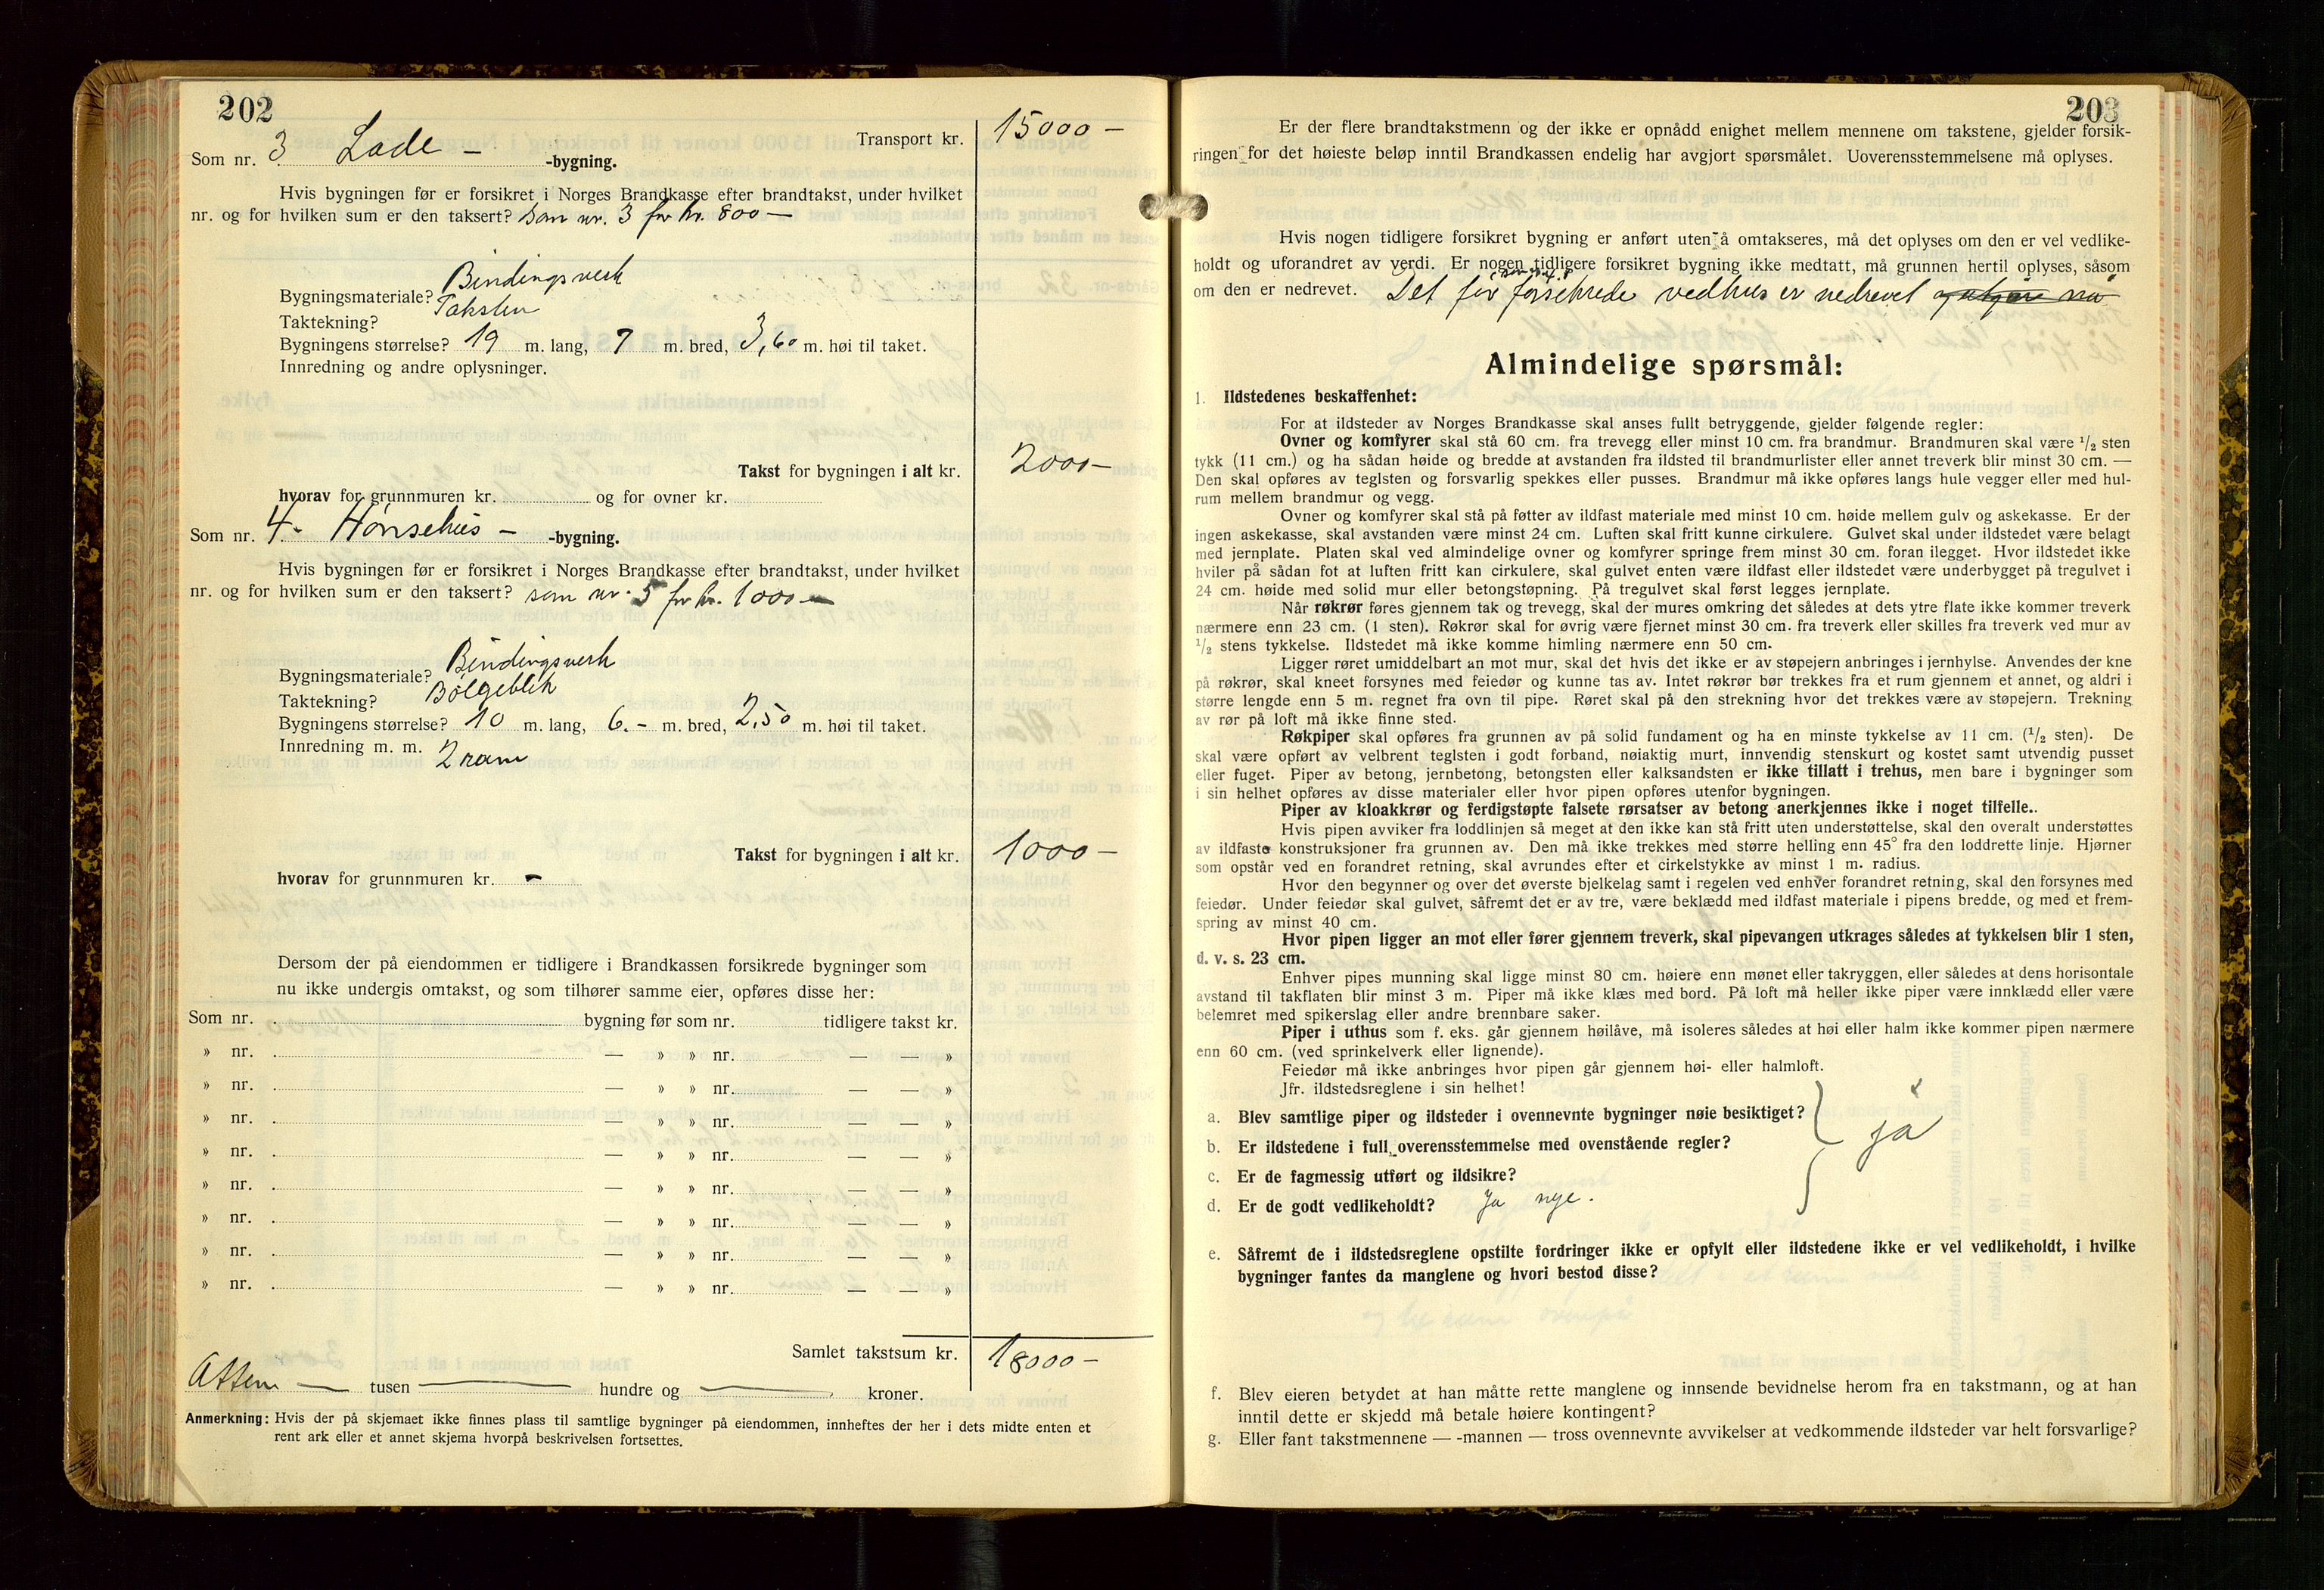 202
Transport kr. 15000 —
Som nr. 3 Lade — -bygning.
Hvis bygningen før er forsikret i Norges Brandkasse efter brandtakst, under hvilket
nr. og for hvilken sum er den taksert? som nr. 3 for kr. 800 —
Bygningsmateriale? Bindingsverk
Taktekning? Taksten
Bygningens størrelse? 19 m. lang, 7 m. bred, 3,60 m. høi til taket.
Innredning og andre oplysninger.
Takst for bygningen i alt kr. 2000 —
hvorav for grunnmuren kr. og for ovner kr.
Som nr. 4. Hønsehus — -bygning.
Hvis bygningen før er forsikret i Norges Brandkasse efter brandtakst, under hvilket
nr. og for hvilken sum er den taksert? som nr. 5 for kr. 1000 —
Bygningsmateriale? Bindingsverk
Taktekning? Bølgeblik
Bygningens størrelse? 10 m. lang, 6. – m. bred, 2,50 m. høi til taket.
Innredning m. m. 2 rom
Takst for bygningen i alt kr. 1000 —
hvorav for grunnmuren kr. —
Dersom der på eiendommen er tidligere i Brandkassen forsikrede bygninger som
nu ikke undergis omtakst, og som tilhører samme eier, opføres disse her:
Som nr. bygning før som nr. tidligere takst kr.
» nr. — » » nr. — — »
» nr. — » » nr. — — »
» nr. — » » nr. — — »
» nr. — » » nr. — — »
» nr. — » » nr. — — »
» nr. — » » nr. — — »
» nr. — » » nr. — — »
» nr. — » » nr. — — »
Samlet takstsum kr. 18000 —
Atten — tusen — hundre og — kroner.
Anmerkning: Hvis der på skjemaet ikke finnes plass til samtlige bygninger på eiendommen, innheftes der her i dets midte enten et
rent ark eller et annet skjema hvorpå beskrivelsen fortsettes.
203
Er der flere brandtakstmenn og der ikke er opnådd enighet mellem mennene om takstene, gjelder forsik-
ringen for det høieste beløp inntil Brandkassen endelig har avgjort spørsmålet. Uoverensstemmelsene må oplyses.
Hvis nogen tidligere forsikret bygning er anført uten å omtakseres, må det oplyses om den er vel vedlike-
holdt og uforandret av verdi. Er nogen tidligere forsikret bygning ikke medtatt, må grunnen hertil oplyses, såsom
som nr. 4
om den er nedrevet. Det før forsikrede vedhus er nedrevet
Almindelige spørsmål:
1. Ildstedenes beskaffenhet:
For at ildsteder av Norges Brandkasse skal anses fullt betryggende, gjelder følgende regler:
Ovner og komfyrer skal stå 60 cm. fra trevegg eller minst 10 cm. fra brandmur. Brandmuren skal være 1/2 sten
tykk (11 cm.) og ha sådan høide og bredde at avstanden fra ildsted til brandmurlister eller annet treverk blir minst 30 cm. —
Den skal opføres av teglsten og forsvarlig spekkes eller pusses. Brandmur må ikke opføres langs hule vegger eller med hul-
rum mellem brandmur og vegg.
Ovner og komfyrer skal stå på føtter av ildfast materiale med minst 10 cm. høide mellem gulv og askekasse. Er der
ingen askekasse, skal avstanden være minst 24 cm. Luften skal fritt kunne cirkulere. Gulvet skal under ildstedet være belagt
med jernplate. Platen skal ved almindelige ovner og komfyrer springe frem minst 30 cm. foran ilegget. Hvor ildstedet ikke
hviler på sådan fot at luften fritt kan cirkulere, skal gulvet enten være ildfast eller ildstedet være underbygget på tregulvet i
24 cm. høide med solid mur eller betongstøpning. På tregulvet skal først legges jernplate.
Når røkrør føres gjennem tak og trevegg, skal der mures omkring det således at dets ytre flate ikke kommer treverk
nærmere enn 23 cm. (1 sten). Røkrør skal for øvrig være fjernet minst 30 cm. fra treverk eller skilles fra treverk ved mur av
1/2 stens tykkelse. Ildstedet må ikke komme himling nærmere enn 50 cm.
Ligger røret umiddelbart an mot mur, skal det hvis det ikke er av støpejern anbringes i jernhylse. Anvendes der kne
på røkrør, skal kneet forsynes med feiedør og kunne tas av. Intet røkrør bør trekkes fra et rum gjennem et annet, og aldri i
større lengde enn 5 m. regnet fra ovn til pipe. Røret skal på den strekning hvor det trekkes være av støpejern. Trekning
av rør på loft må ikke finne sted.
Røkpiper skal opføres fra grunnen av på solid fundament og ha en minste tykkelse av 11 cm. (1/2 sten). De
skal være opført av velbrent teglsten i godt forband, nøiaktig murt, innvendig stenskurt og kostet samt utvendig pusset
eller fuget. Piper av betong, jernbetong, betongsten eller kalksandsten er ikke tillatt i trehus, men bare i bygninger som
i sin helhet opføres av disse materialer eller hvor pipen opføres utenfor bygningen.
Piper av kloakkrør og ferdigstøpte falsete rørsatser av betong anerkjennes ikke i noget tilfelle..
Hvis pipen avviker fra loddlinjen så meget at den ikke kan stå fritt uten understøttelse, skal den overalt understøttes
av ildfaste konstruksjoner fra grunnen av. Den må ikke trekkes med større helling enn 45° fra den loddrette linje. Hjørner
som opstår ved en forandret retning, skal avrundes efter et cirkelstykke av minst 1 m. radius.
Hvor den begynner og over det øverste bjelkelag samt i regelen ved enhver forandret retning, skal den forsynes med
feiedør. Under feiedør skal gulvet, såfremt det er av tre, være beklædd med ildfast materiale i pipens bredde, og med et frem-
spring av minst 40 cm.
Hvor pipen ligger an mot eller fører gjennem treverk, skal pipevangen utkrages således at tykkelsen blir 1 sten,
d. v. s. 23 cm.
Enhver pipes munning skal ligge minst 80 cm. høiere enn mønet eller takryggen, eller således at dens horisontale
avstand til takflaten blir minst 3 m. Piper må ikke klæs med bord. På loft må heller ikke piper være innklædd eller være
belemret med spikerslag eller andre brennbare saker.
Piper i uthus som f. eks. går gjennem høilåve, må isoleres således at høi eller halm ikke kommer pipen nærmere
enn 60 cm. (ved sprinkelverk eller lignende).
Feiedør må ikke anbringes hvor pipen går gjennem høi- eller halmloft.
Jfr. ildstedsreglene i sin helhet!
a. Blev samtlige piper og ildsteder i ovennevnte bygninger nøie besiktiget?
b. Er ildstedene i full overensstemmelse med ovenstående regler? ja
c. Er de fagmessig utført og ildsikre?
d. Er de godt vedlikeholdt? Ja nye.
e. Såfremt de i ildstedsreglene opstilte fordringer ikke er opfylt eller ildstedene ikke er vel vedlikeholdt, i hvilke
bygninger fantes da manglene og hvori bestod disse?
f. Blev eieren betydet at han måtte rette manglene og innsende bevidnelse herom fra en takstmann, og at han
inntil dette er skjedd må betale høiere kontingent?
g. Eller fant takstmennene — -mannen — tross ovennevnte avvikelser at vedkommende ildsteder var helt forsvarlige?